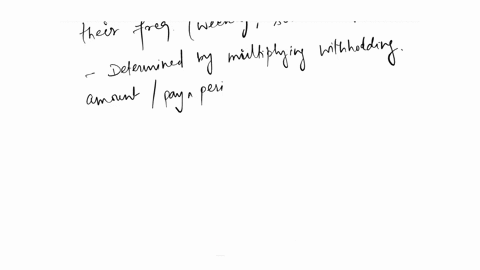 their freq (weekly,
- Determined by multiplying withholding.
amount / pay peri